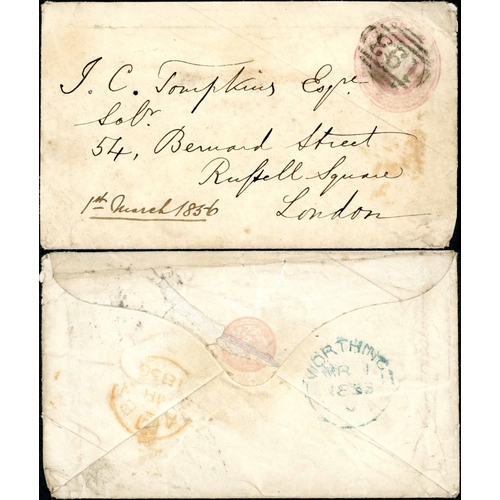 J. C. Tompkins Esqre
Solr
54, Bernard Street
Russell Square
London
1st March 1856
WORTHING
MR 1